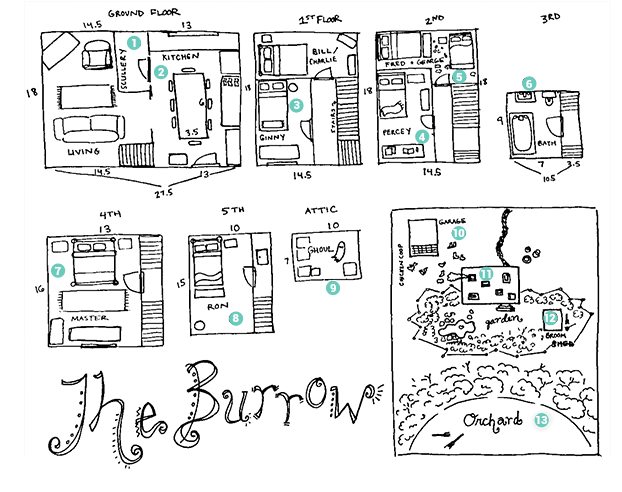 GROUND FLOOR
14.5
13
1
SCULLERY
KITCHEN
2
18
6
3.5
LIVING
14.5
13
27.5
1ST FLOOR
BILL/
CHARLIE
18
3
STAIRS
GINNY
14.5
2ND
FRED + GEORGE
5
18
18
PERCEY
4
14.5
3RD
6
9
BATH
7
3.5
10.5
4TH
13
7
16
MASTER
5TH
10
15
RON
8
ATTIC
10
GHOUL
7
9
GARAGE
10
CHICKEN COOP
11
garden
12
BROOM
SHED
Orchard
13
The Burrow